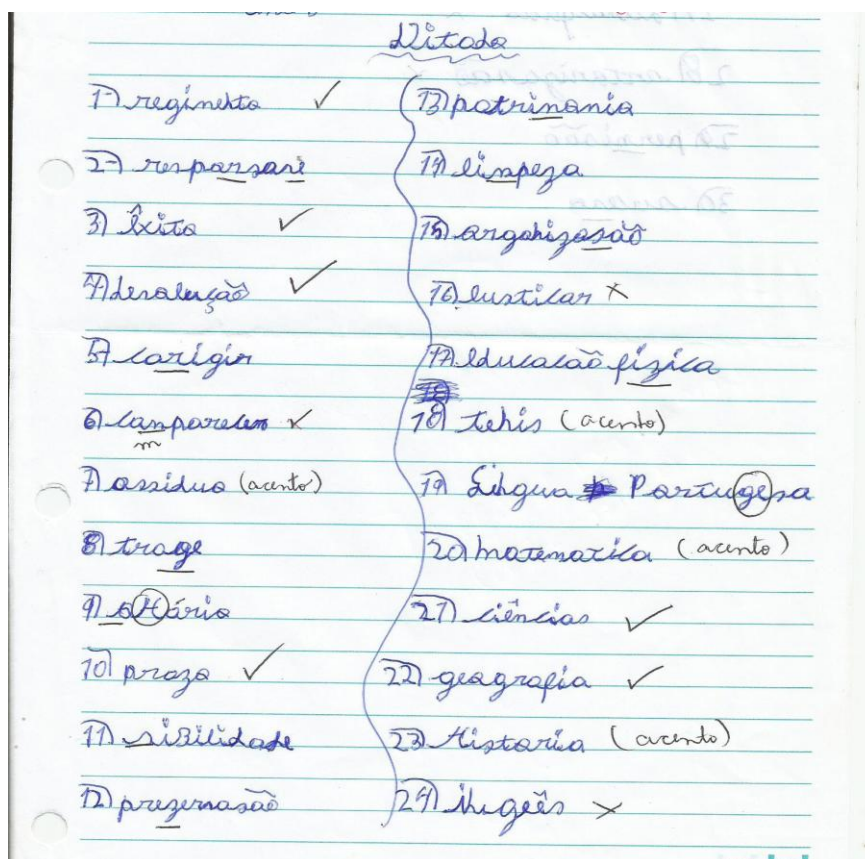 Ditado
1-) regimento
2-) resposavi
3) êxito
4) devolução
5-) corigir
6) conparecer
m
7) assiduo (acento)
8) trage
10) prazo
12) prezervasão
13) patrimonio
14) linpeza
15) organizasão
17) educacão fízica
18) tenis (acento)
19) Lingua Portugesa
20) matematica (acento)
21) ciências
22) geografia
23) Historia (acento)